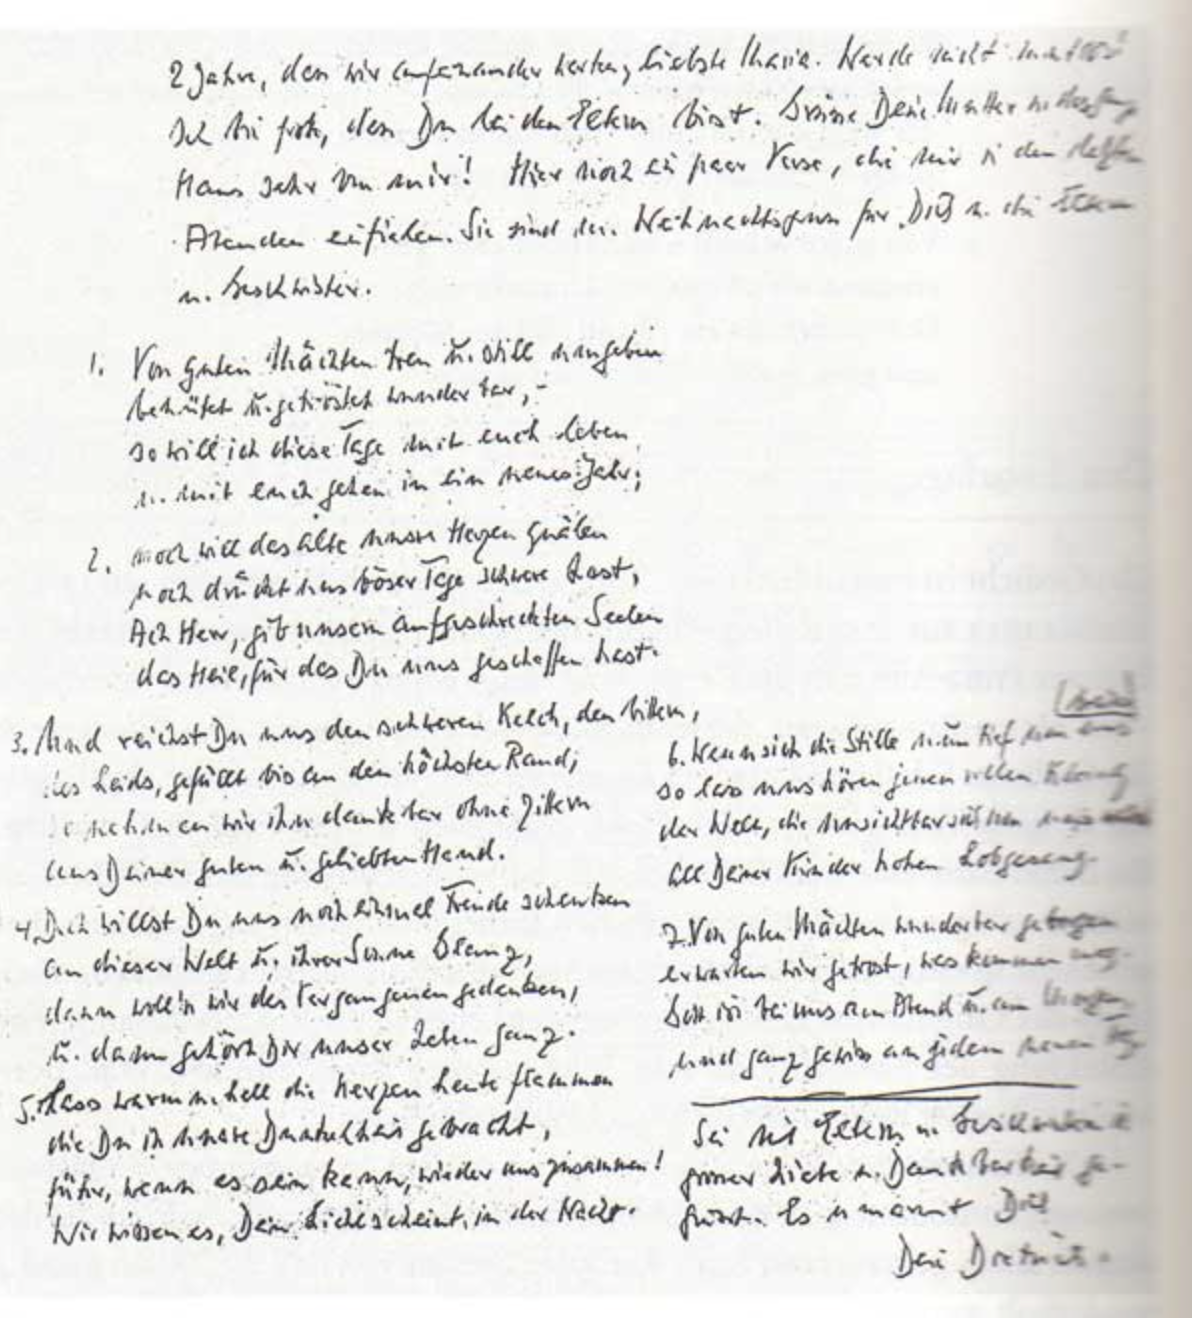 2 Jahre, dass wir aufeinander warten, liebste Maria. Werde nicht mutlos!
Ich bin froh, dass Du bei den Eltern bist. Grüsse Deine Mutter u. das ganze
Haus sehr von mir! Hier noch ein paar Verse, die mir in den letzten
Abenden einfielen. Sie sind der Weihnachtsgruss für Dich u. die Eltern
u. Geschwister.
1. Von guten Mächten treu u. still umgeben
behütet u. getröstet wunderbar, –
so will ich diese Tage mit euch leben
u. mit euch gehen in ein neues Jahr;
2. noch will das alte unsre Herzen quälen
noch drückt uns böser Tage schwere Last,
Ach Herr, gib unsern aufgeschreckten Seelen
das Heil, für das Du uns geschaffen hast.
3. Und reichst Du uns den schweren Kelch, den bittern,
des Leids, gefüllt bis an den höchsten Rand,
so nehmen wir ihn dankbar ohne Zittern
aus Deiner guten u. geliebten Hand.
4. Doch willst Du uns noch einmal Freude schenken
an dieser Welt u. ihrer Sonne Glanz,
dann woll'n wir des Vergangenen gedenken,
u. dann gehört Dir unser Leben ganz.
5. Lass warm u. hell die Kerzen heute flammen
die Du in unsre Dunkelheit gebracht,
führ, wenn es sein kann, wieder uns zusammen!
Wir wissen es, Dein Licht scheint in der Nacht.
6. Wenn sich die Stille nun tief um uns
so lass uns hören jenen vollen Klang
der Welt, die unsichtbar sich um uns
all Deiner Kinder hohen Lobgesang.
7. Von guten Mächten wunderbar geborgen
erwarten wir getrost, was kommen mag.
Gott ist bei uns am Abend u. am Morgen,
und ganz gewiss an jedem neuen Tag.
Sei mit Eltern u. Geschwistern in
grosser Liebe u. Dankbarkeit ge-
grüsst. Es umarmt Dich
Dein Dietrich.